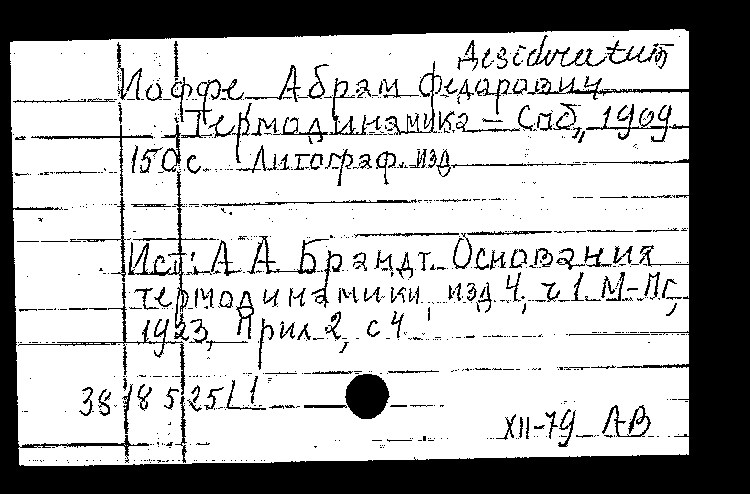 Desideratum
Иоффе, Абрам Федорович
Термодинамика — Спб, 1909.
150 с. Литограф. изд.
Ист: А А Брандт. Основания
термодинамики, изд 4, ч 1. М-Пг,
1923, Прил 2, с 4
38 18 5 25/1
XII-79 АВ